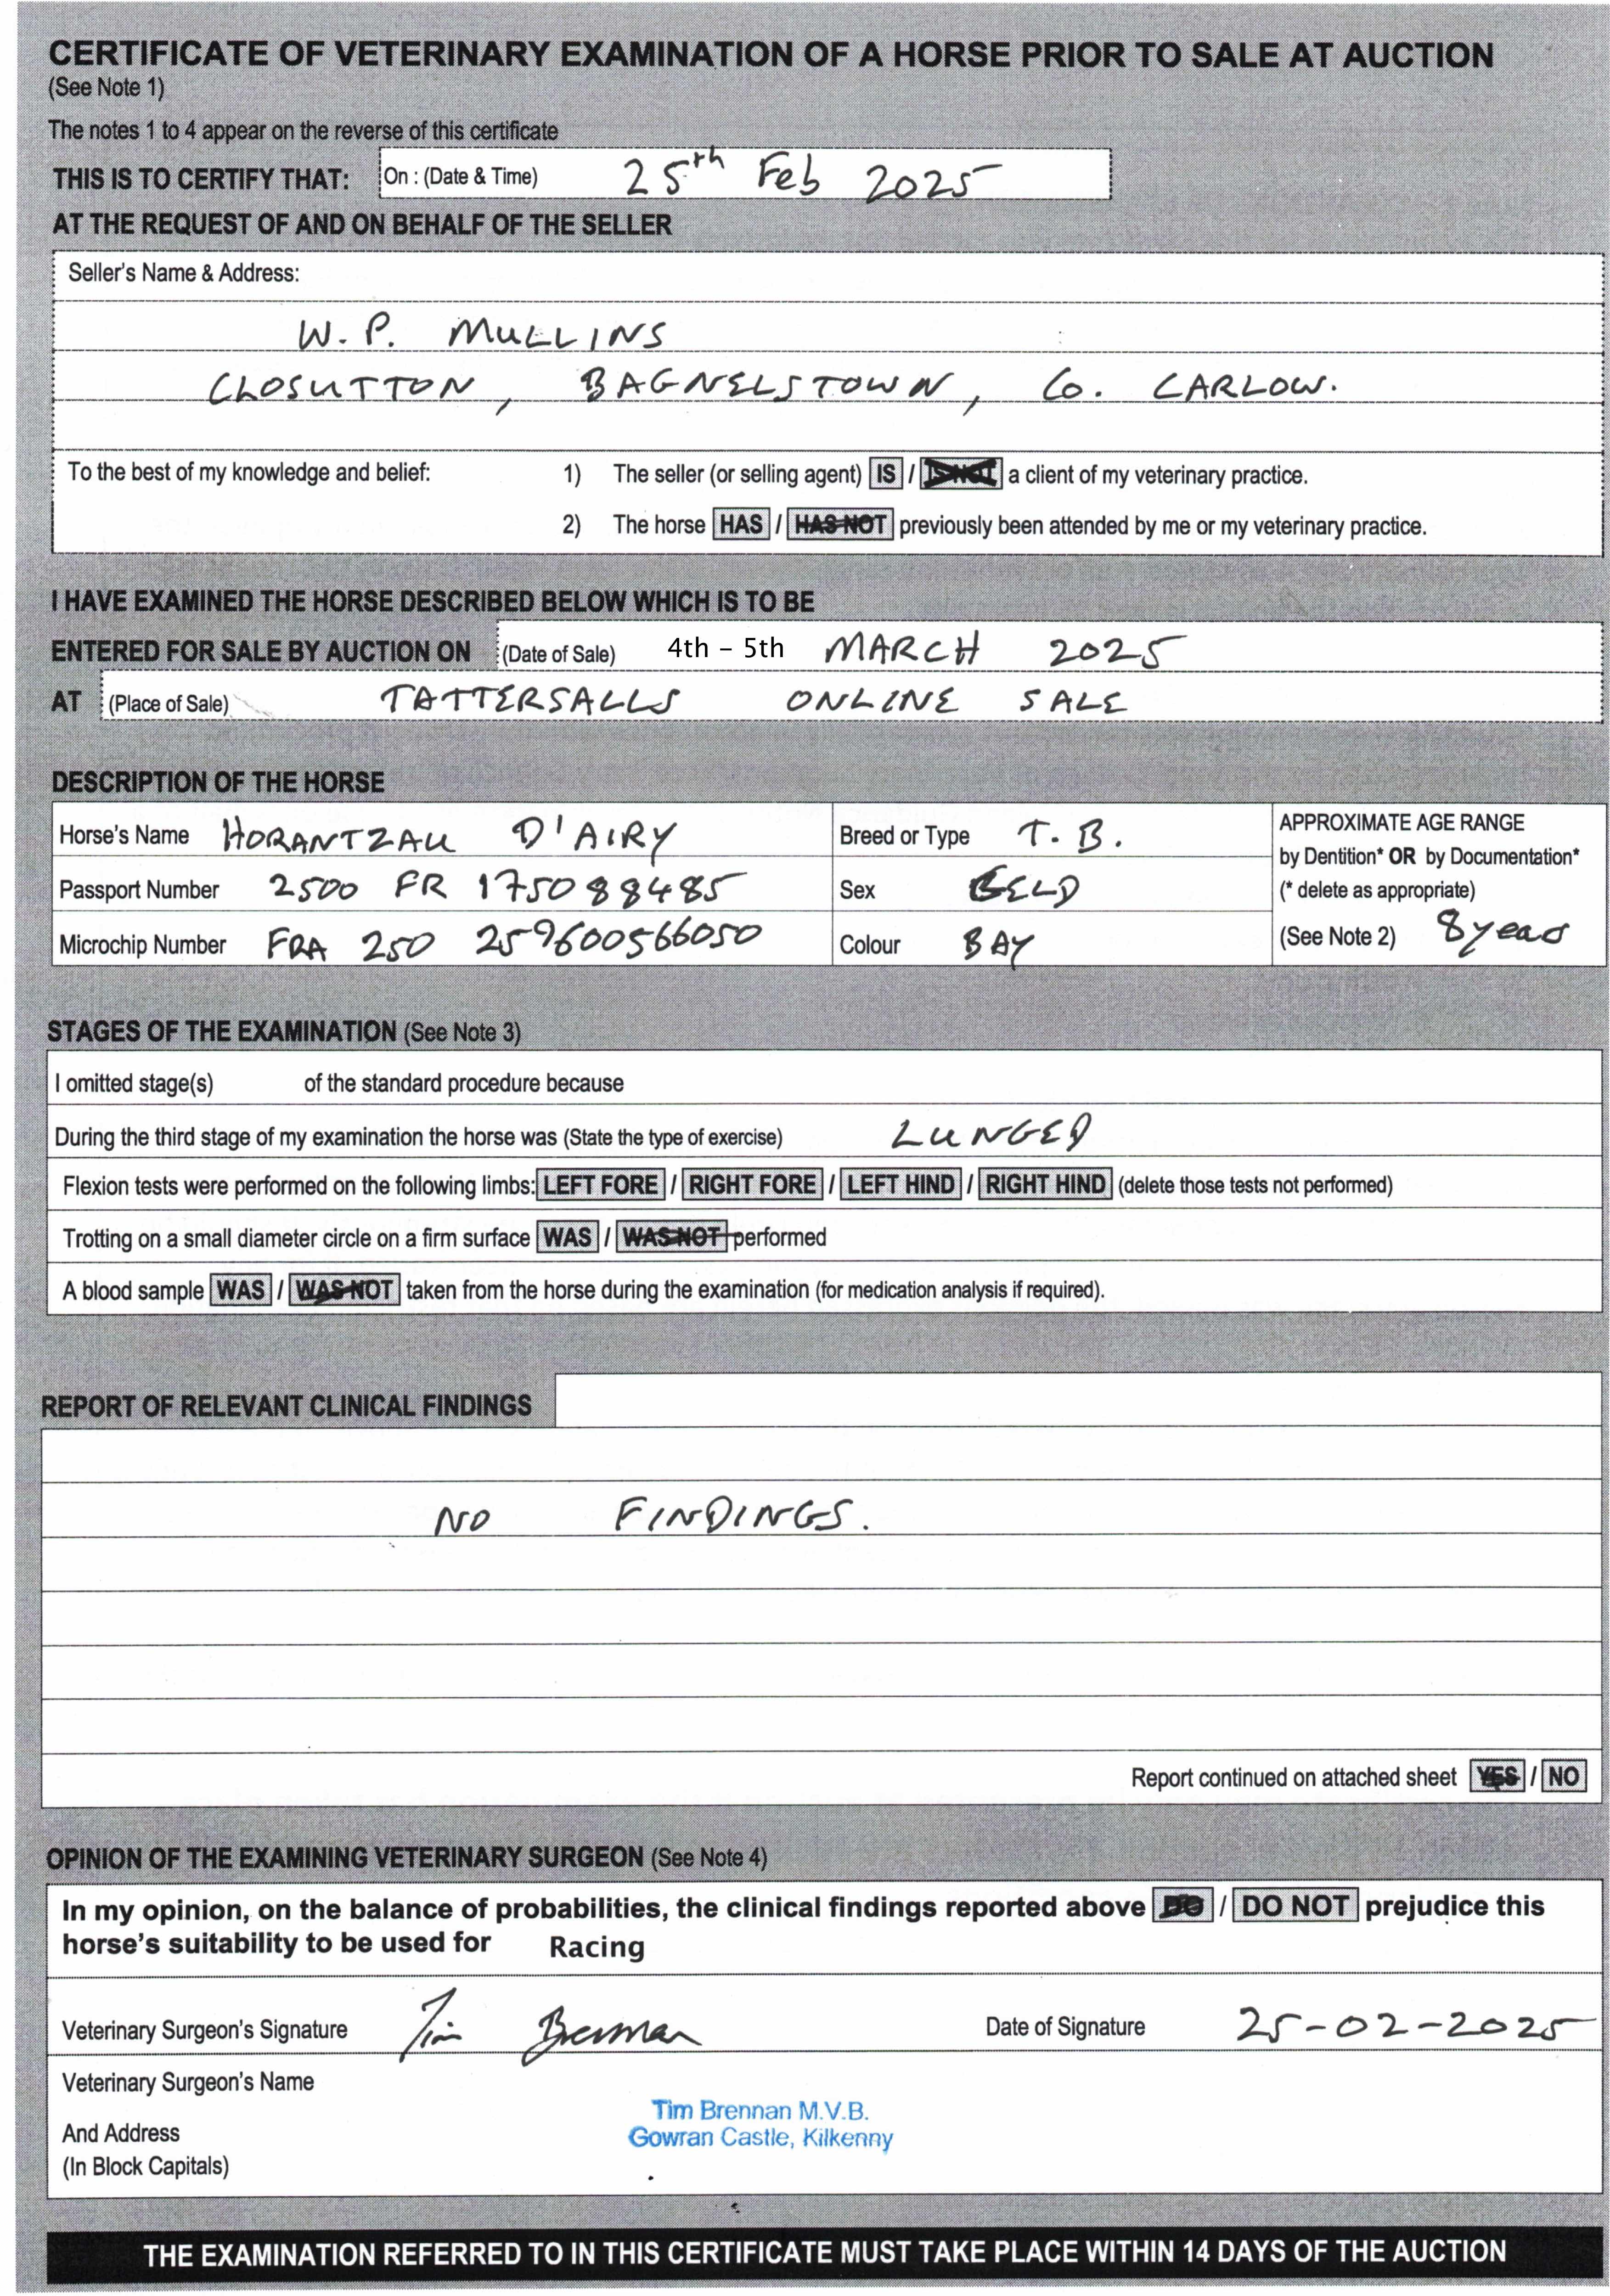 CERTIFICATE OF VETERINARY EXAMINATION OF A HORSE PRIOR TO SALE AT AUCTION
(See Note 1)
The notes 1 to 4 appear on the reverse of this certificate
THIS IS TO CERTIFY THAT: On : (Date & Time) 25th Feb 2025
AT THE REQUEST OF AND ON BEHALF OF THE SELLER
Seller's Name & Address:
W.P. MULLINS
CLOSUTTON, BAGNELSTOWN, Co. CARLOW.
To the best of my knowledge and belief: 1) The seller (or selling agent) IS / IS NOT a client of my veterinary practice.
2) The horse HAS / HAS NOT previously been attended by me or my veterinary practice.
I HAVE EXAMINED THE HORSE DESCRIBED BELOW WHICH IS TO BE
ENTERED FOR SALE BY AUCTION ON (Date of Sale) 4th – 5th MARCH 2025
AT (Place of Sale) TATTERSALLS ONLINE SALE
DESCRIPTION OF THE HORSE
Horse's Name HORANTZAU D'AIRY Breed or Type T.B. APPROXIMATE AGE RANGE
by Dentition* OR by Documentation*
Passport Number 2500 FR 175088485 Sex GELD (* delete as appropriate)
Microchip Number FRA 250 259600566050 Colour BAY (See Note 2) 8 years
STAGES OF THE EXAMINATION (See Note 3)
I omitted stage(s) of the standard procedure because
During the third stage of my examination the horse was (State the type of exercise) LUNGED
Flexion tests were performed on the following limbs: LEFT FORE / RIGHT FORE / LEFT HIND / RIGHT HIND (delete those tests not performed)
Trotting on a small diameter circle on a firm surface WAS / WAS NOT performed
A blood sample WAS / WAS NOT taken from the horse during the examination (for medication analysis if required).
REPORT OF RELEVANT CLINICAL FINDINGS
NO FINDINGS.
Report continued on attached sheet YES / NO
OPINION OF THE EXAMINING VETERINARY SURGEON (See Note 4)
In my opinion, on the balance of probabilities, the clinical findings reported above DO / DO NOT prejudice this
horse's suitability to be used for Racing
Veterinary Surgeon's Signature Tim Brennan Date of Signature 25-02-2025
Veterinary Surgeon's Name
Tim Brennan M.V.B.
And Address Gowran Castle, Kilkenny
(In Block Capitals)
THE EXAMINATION REFERRED TO IN THIS CERTIFICATE MUST TAKE PLACE WITHIN 14 DAYS OF THE AUCTION